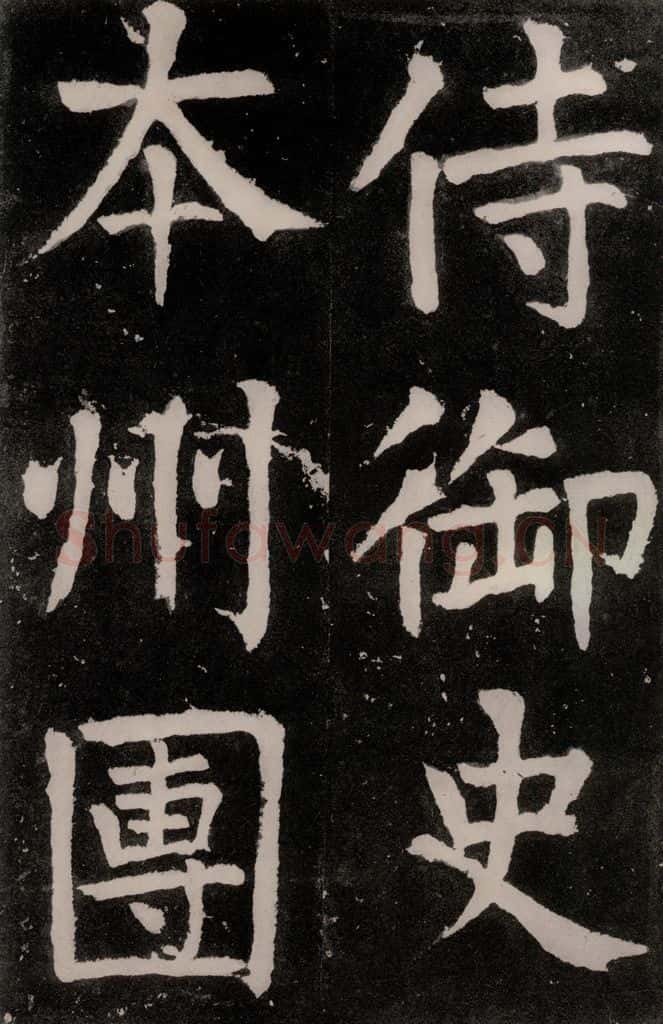 侍御史
本州團
Shufawang.CN